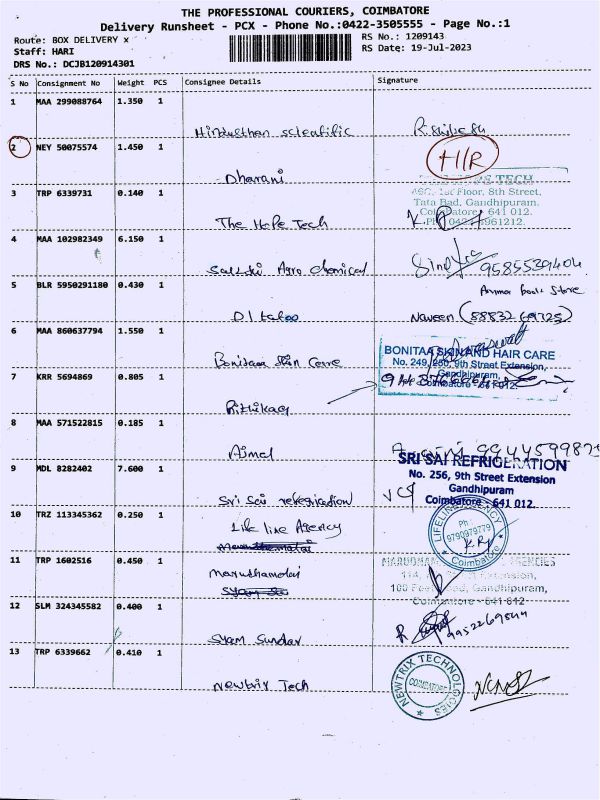 THE PROFESSIONAL COURIERS, COIMBATORE
Delivery Runsheet - PCX - Phone No.:0422-3505555 - Page No.:1
Route: BOX DELIVERY x
Staff: HARI
DRS No.: DCJB120914301
RS No.: 1209143
RS Date: 19-Jul-2023
S No Consignment No Weight PCS Consignee Details Signature
1 MAA 299088764 1.350 1
Hindusthan scientific
2 NEY 50075574 1.450 1
Dharani
H/R
3 TRP 6339731 0.140 1
The Hope Tech
TECH
1st Floor, 8th Street,
Tata Bad, Gandhipuram.
Coimbatore - 641 012.
4 MAA 102982349 6.150 1
Sakthi Agro chemical
9585539404
5 BLR 5950291180 0.430 1
Book Store
Naveen (8883269725)
6 MAA 860637794 1.550 1
Bonitaa Skin Cere
BONITAA SKIN AND HAIR CARE
No. 249, 250, 9th Street Extension,
Gandhipuram,
Coimbatore - 641 012.
7 KRR 5694869 0.805 1
8 MAA 571522815 0.185 1
Ajmal
9 MDL 8282402 7.600 1
Sri Sai refregiration
SRI SAI REFRIGERATION
No. 256, 9th Street Extension
Gandhipuram
Coimbatore - 641 012.
10 TRZ 113345362 0.250 1
Life line Agency
LIFELINE AGENCY
Ph
9790979779
Coimbatore
11 TRP 1602516 0.450 1
Maruthamalai
Extension,
Gandhipuram,
Coimbatore - 641 012
12 SLM 324345582 0.400 1
Syam Sundar
9952269844
13 TRP 6339662 0.410 1
Newtrix Tech
NEWTRIX TECHNOLOGIES
COIMBATORE